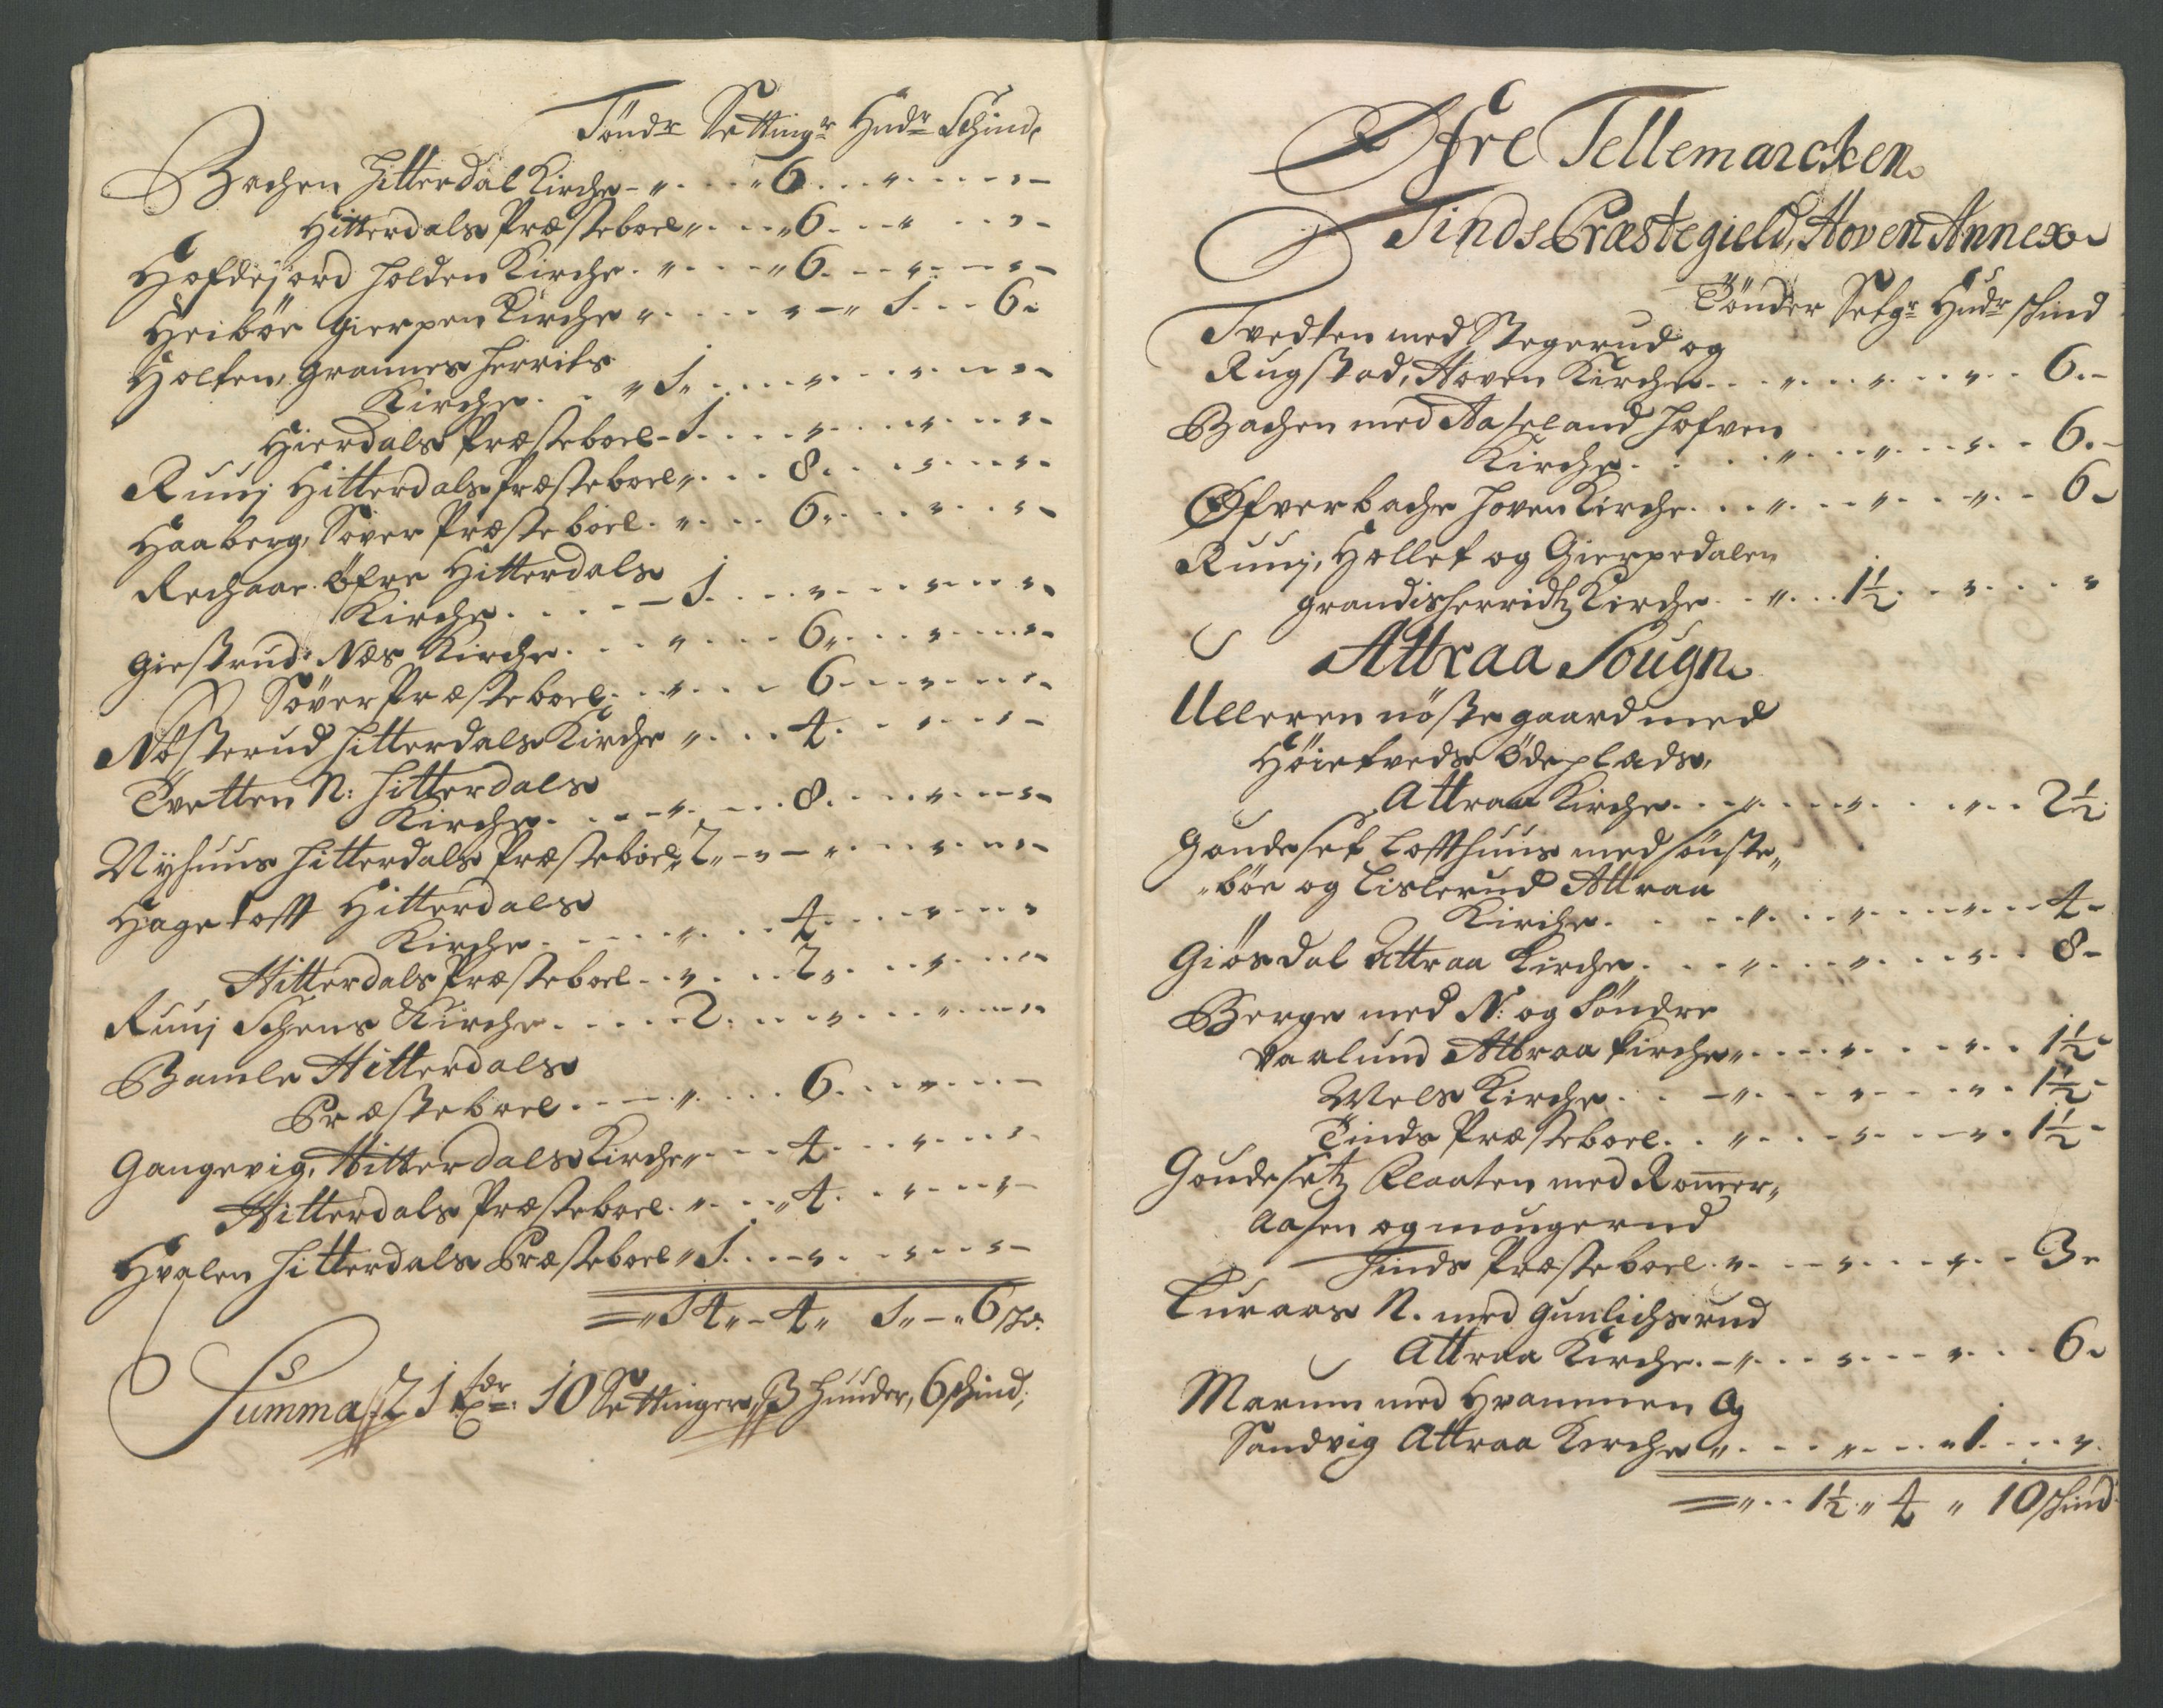 Töndr Settingr Hudr Schind,
Bachen Hitterdal Kirche - „ . . . „ 6 . . . „ . . . . „ -
Hitterdals Præsteboel „ . . . „ 6 . . . „ . . . „ -
Hofdejord Holden Kirche . „ . . . „ 6 . . . „ . . . „ -
Heiböe Gierpen Kirche „ . . . . „ - „ 1 . . . 6 „
Holten, Grannes Herrits
Kirche . . „ 1 „ . . . . „ . . . „ . . . „ -
Hierdals Præsteboel - 1 . . . . „ . . . . „ . . . „ -
Ruuj Hitterdals Præsteboel „ . . . 8 . . . „ . . . „ -
Haaberg, Söver Præsteboel . „ . . . 6 „ . . . „ . . . „ -
Rechaar Öfre Hitterdals
Kirche . . . . - 1 . . . . „ . . . „ . . . „ -
Giestrud Næs Kirche . . . „ . . . 6 „ . . . „ . . . „ -
Söver Præsteboel . . „ . . . 6 . . . „ . . . „ -
Nösterud Hitterdals Kirche „ . . . 4 . . . „ . . . „ -
Tvetten N: Hitterdals
Kirche . . . - „ . . . 8 . . . . „ . . . „ -
Nyhuus Hitterdals Præsteboel „ 2 „ - „ - „ . . . „ . . . „ -
Hagetofft Hitterdals
Kirche . . . . . „ . . . 4 . . . . „ . . . „
Hitterdals Præsteboel . . „ . . . 2 „ . . . „ . . . „ -
Ruuj Schens Kirche . . . . . 2 . . . . „ . . . „ . . . „ -
Bamle Hitterdals
Præsteboel . . - - „ . . . . 6 . . . „ . . . -
Gangevig, Hitterdals Kirche „ . . . 4 . . . „ . . . „ -
Hitterdals Præsteboel . „ . . . „ 4 . . „ . . . „ -
Hvalen Hitterdals Præsteboel „ 1 . . . - „ . . „ . . „ -
= „ 14 „ - 4 „ 1 „ - „ 6 sch:
Summa 21 tdr: 10 Settinger, 3 Huuder, 6 schind;
Öfre Tellemarcken
Tinds Præstegield, Hoven Annex
Tönder Setgr Hudr schind
Tvedten med Stegerud og
Rugstad, Hoven Kirche . . . „ . . . „ . . . „ . . 6 . -
Bachen med Aaseland Hofven
Kirche . . . . . „ . . . „ . . . „ . . 6 . -
Öfverbache Hoven Kirche . . . „ . . . „ . . . „ . . 6 -
Ruuj, Hollet og Gierpedalen
Grandisherridtz Kirche . . „ . . . 1½ . . „ . . . . „
Attraa Sougn
Ulleren nöste gaard med
Höietveds Ödeplads,
Attraa Kirche . . . „ . . . . „ . . . . „ . . 2½
Goudeset Loffthuus med sönste„
„böe og Lislerud Attraa
Kirche . . . . . „ . . . „ . . . . „ . . 4 -
Giösdal Attraa Kirche . . . „ . . . . „ . . . . „ . . 8 -
Berge med N: og Söndre
Vaalund Attraa Kirche „ . . . . „ . . . . „ . . 1½ -
Mels Kirche . . - „ . . . . „ . . . . „ . 1½ -
Tinds Præsteboel . . „ . . . . „ . . . - „ . 1½ -
Goudesetz Plaaten med Romer„
aasen og mougerud
Tinds Præsteboel . „ . . . „ . . . „ . . 3 „
Luraas N. med Gunlichsrud
Attraa Kirche . - „ . . . „ . . . „ . . . 6 „
Marum med Hvammen Og
Sandvig Attraa Kirche „ . . . . „ . . . „ 1 . . . . „
= „ . . 1½ „ 4 „ 10 schind